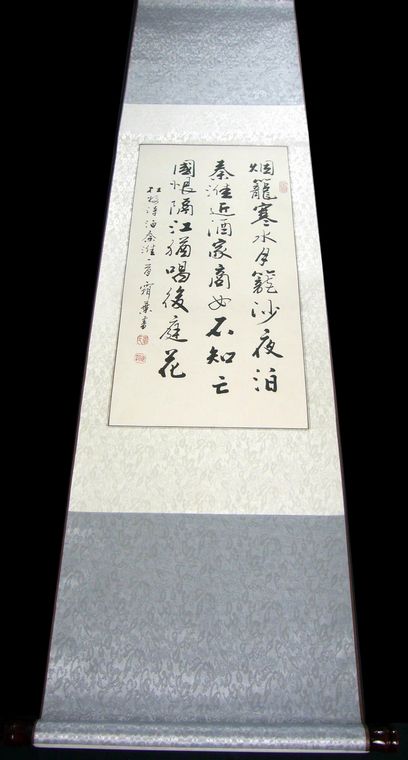 烟籠寒水月籠沙夜泊
秦淮近酒家商女不知亡
國恨隔江猶唱後庭花
杜牧詩泊秦淮一首 書